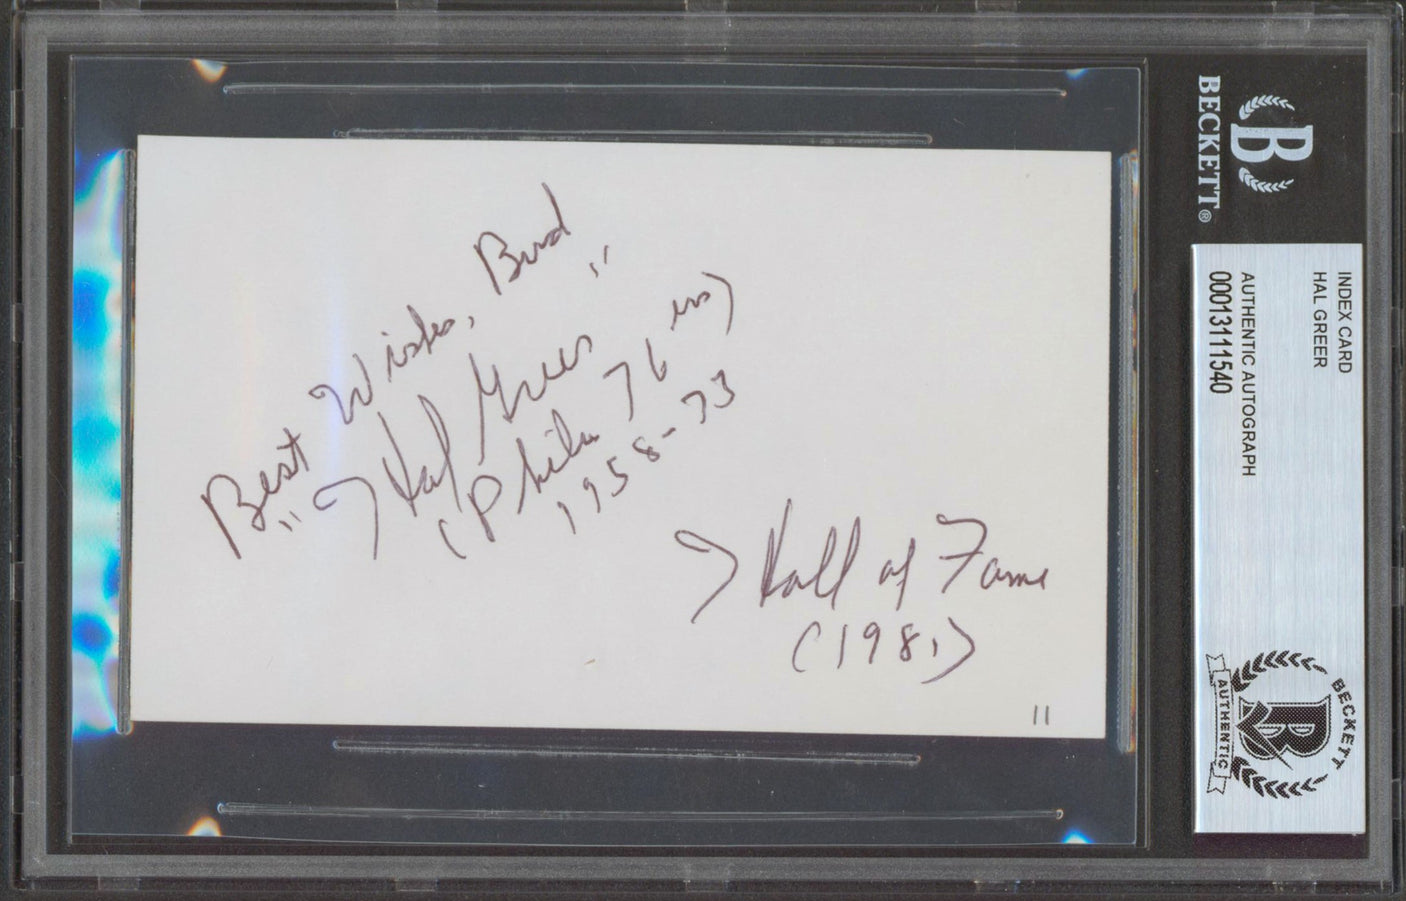 Best Wishes, Bud
" Hal Greer "
(Phila 76ers)
1958-73
Hall of Fame
(1981)
11
BECKETT®
B
INDEX CARD
HAL GREER
AUTHENTIC AUTOGRAPH
00013111540
BECKETT
B
AUTHENTIC